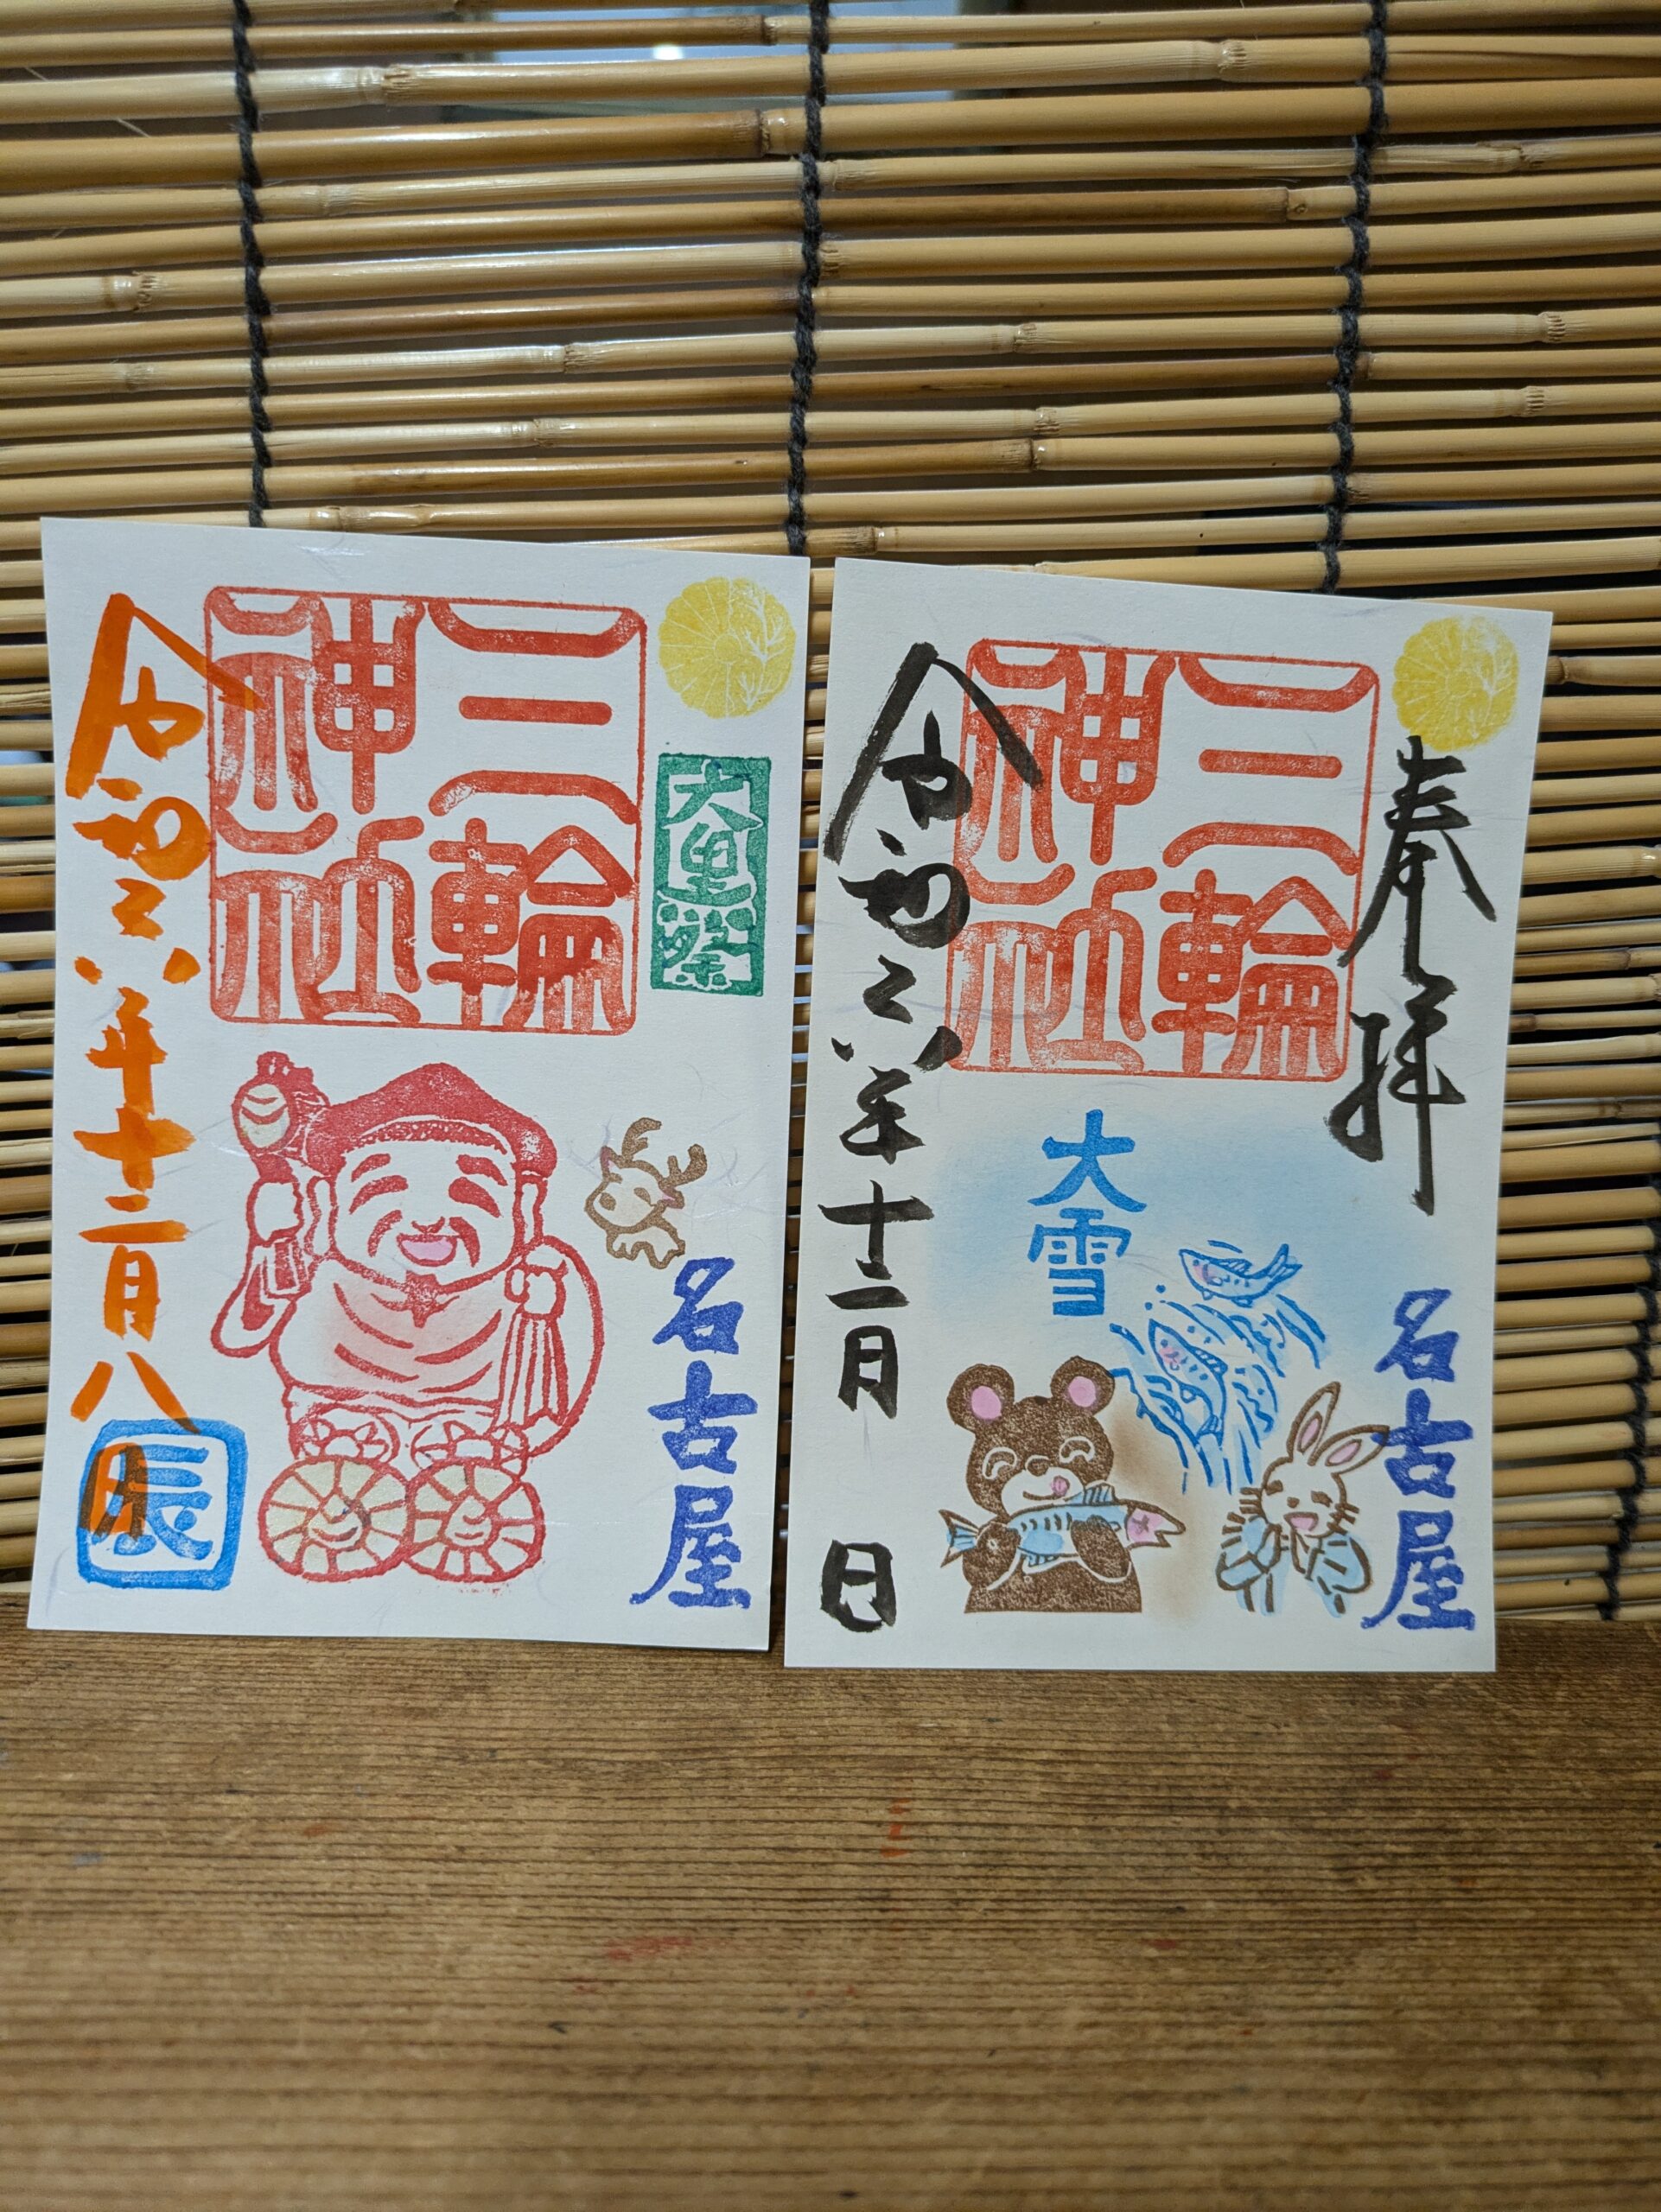 大黒祭
三輪
神社
名古屋
令和六年十二月八日
辰
奉拝
三輪
神社
大雪
名古屋
令和六年十二月 日